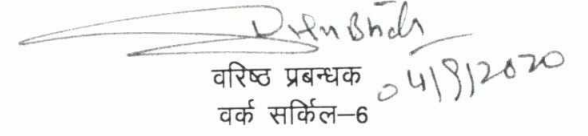 वरिष्ठ प्रबन्धक
04/9/2020
वर्क सर्किल-6